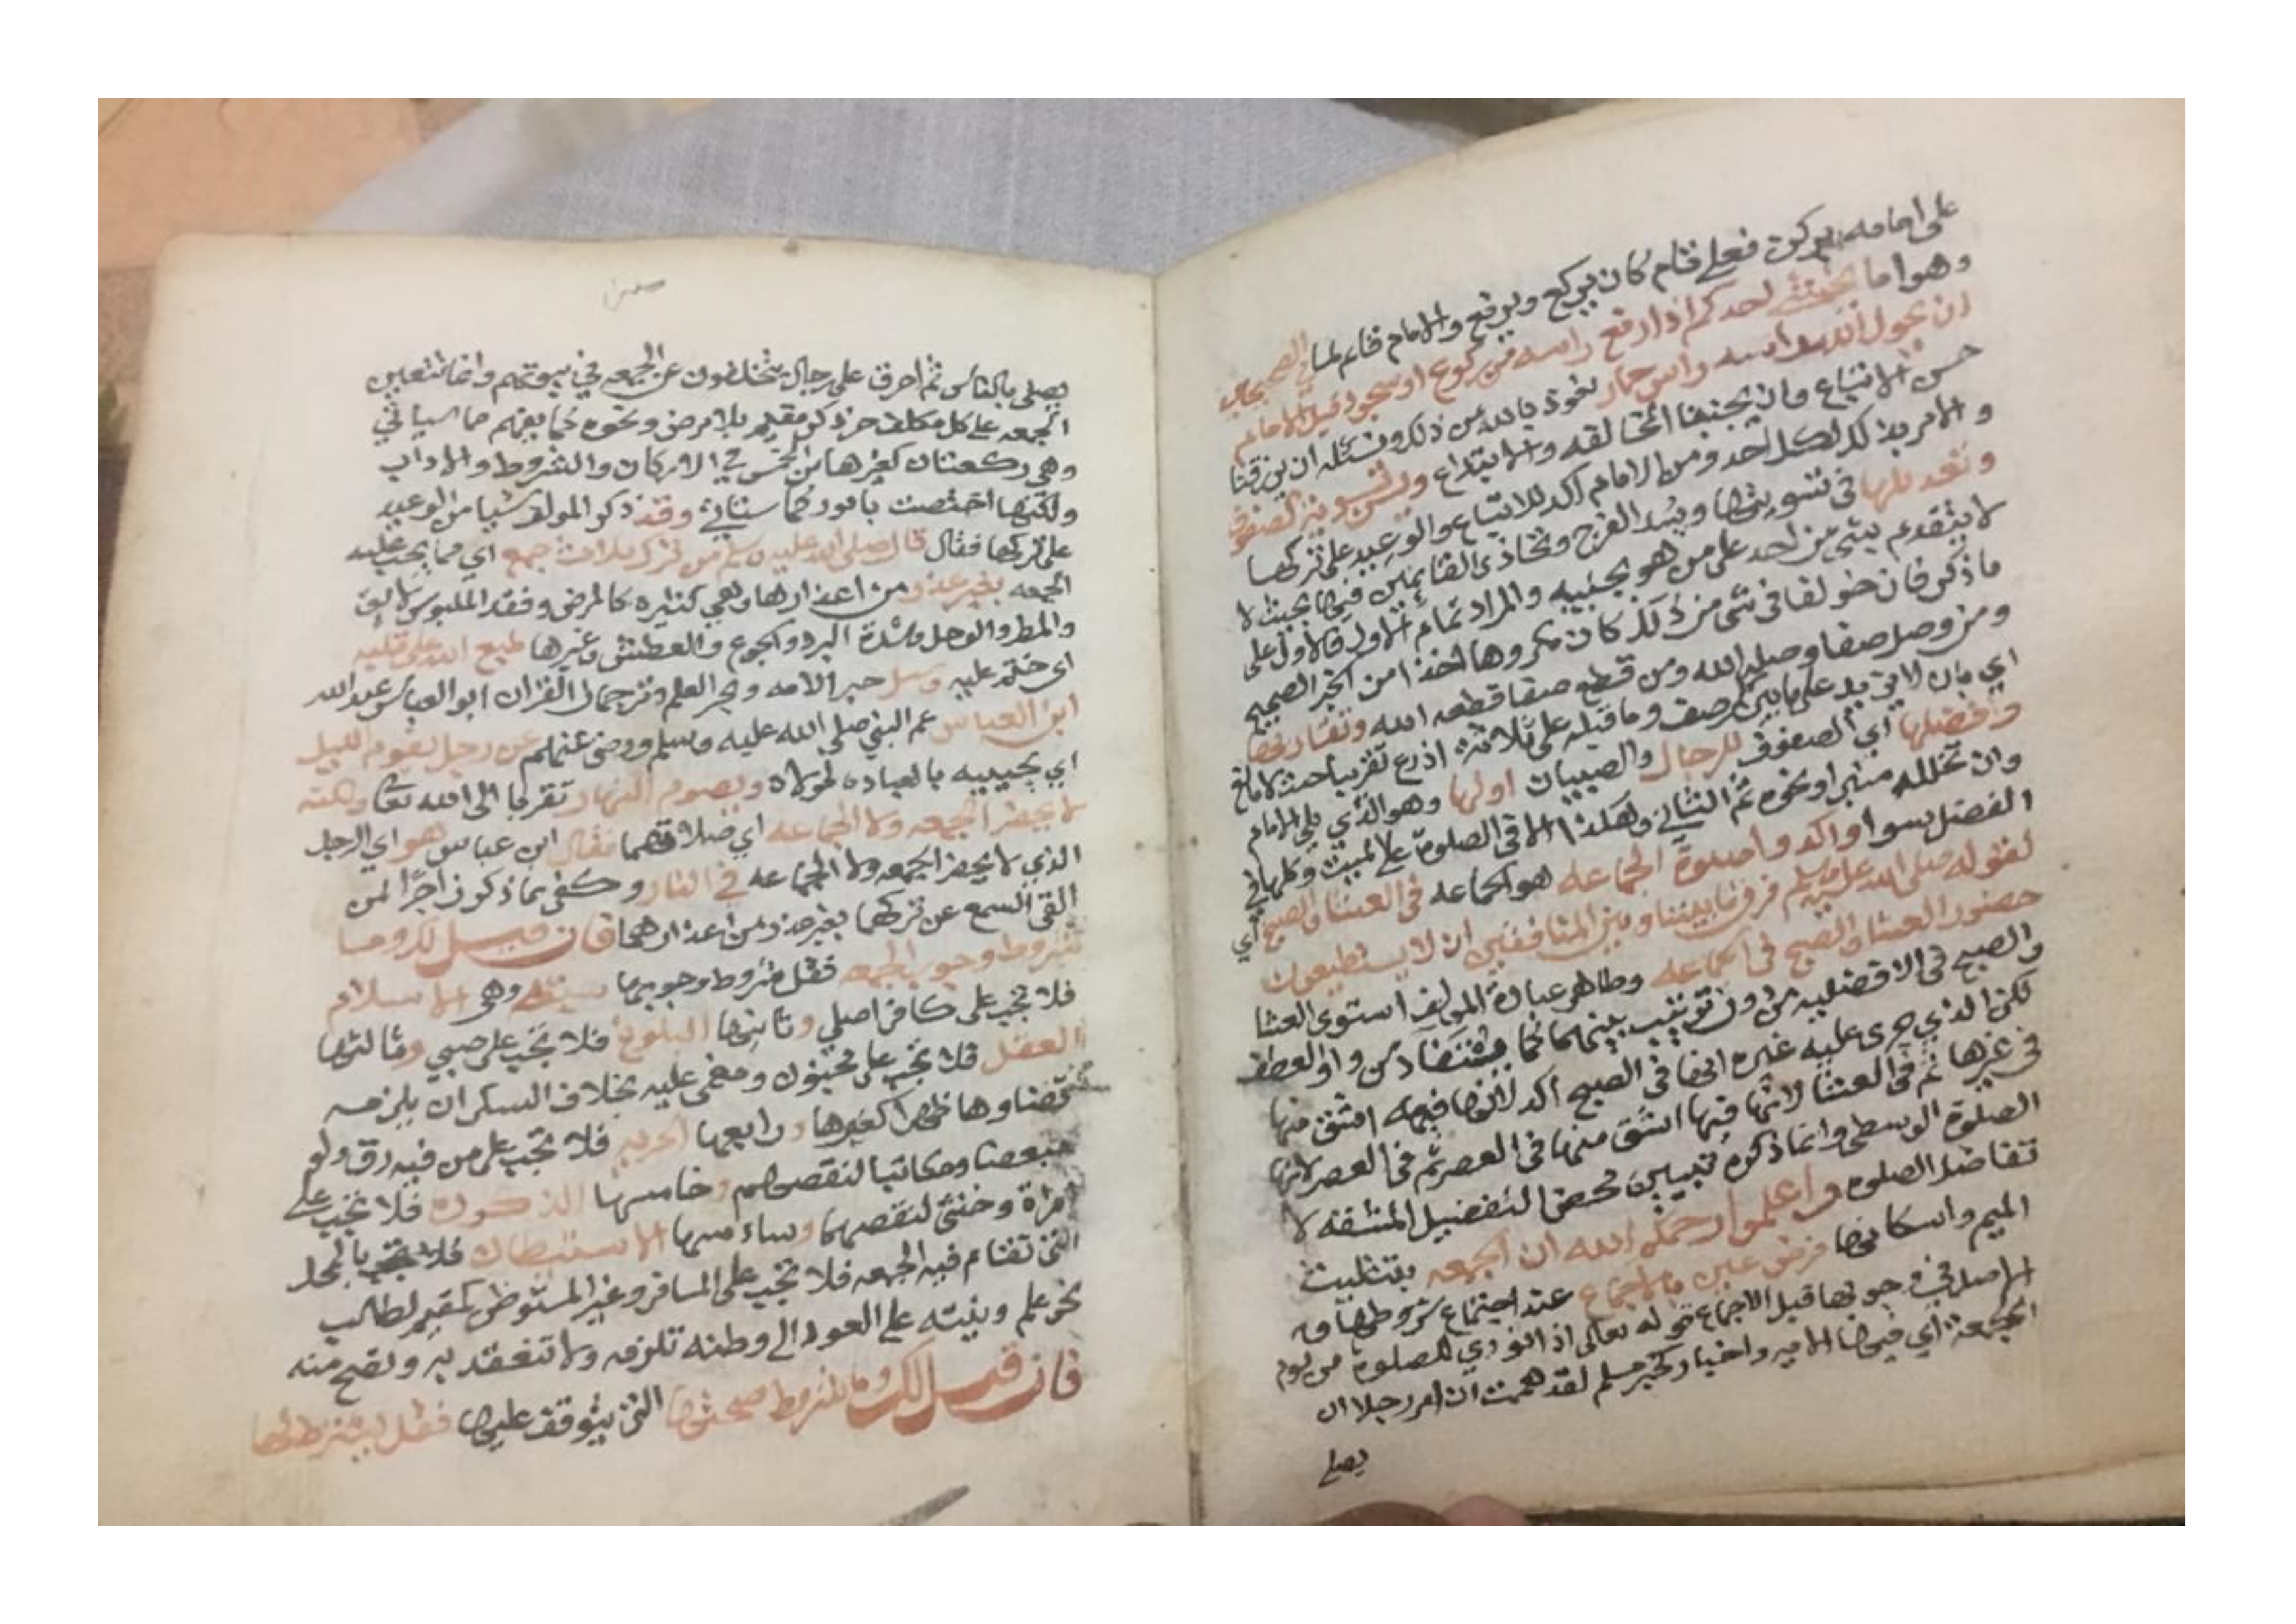 على امامه بركن فعلي تام كان يركع ويرفع والامام قائم لما في الصحيحين
وهو اما يخشى احدكم اذا رفع راسه من ركوع او سجود قبل الامام
ان يحول الله راسه راس حمار نعوذ بالله من ذلك ونسئله ان يرزقنا
حسن الاتباع وان يجنبنا المخالفه والابتداع وتسوية الصفوف
والامر بذلك لكل احد ومن الامام اكد للاتباع والوعيد على تركها
وتعديلها في تسويتها وبسد الفرج وتحاذي القائمين فيها بحيث لا
لا يتقدم شي من احد على من هو بجنبه والمراد تمام الاول فالاول على
ما ذكر فان خولفا في شي من ذلك كان مكروها اخذا من الخبر الصحيح
ومن وصل صفا وصله الله ومن قطع صفا قطعه الله وتقاربها
اي بان لا يزيد على ما بين كل صف وما قبله على ثلاثة اذرع تقريبا حيث لا مانع
وافضلها اي الصفوف للرجال والصبيان اولها وهو الذي يلي الامام
وان تخلله منبر او نحوه ثم الثاني وهكذا الا في الصلوة على الميت وكلها في
الفضل سوا واكد واصلوة الجماعه هو الجماعه في العشا والصبح اي
لقوله صلى الله عليه وسلم فرق ما بيننا وبين المنافقين ان لا يستطيعون
حضور العشا والصبح في الجماعه وظاهر عبارة المولف استوى العشا
والصبح في الافضليه من دون ترتيب بينهما كما من واو العطف
لكن الذي جرى عليه غيره انها في الصبح اكد لانها فيه اشق منها
في غيرها ثم في العشا لانها فيها اشق منها في العصر ثم في العصر لانها
الصلوة الوسطى وانما ذكروه تبيين محض لتفضيل المشقه لا
تفاضل الصلوه واعلموا رحمكم الله ان الجمعه بتثليث
الميم واسكانها فرض عين بالاجماع عند اجتماع شروطها و
الاصل في وجوبها قبل الاجماع قوله تعالى اذا نودي للصلوة من يوم
الجمعة اي فيها الايه واخبار كخبر مسلم لقد هممت ان امر رجلا ان
يصلي
يصلي بالناس ثم احرق على رجال يتخلفون عن الجمعه في بيوتهم وانما تتعين
الجمعه على كل مكلف حر ذكر مقيم بلا مرض ونحوه كما يفهم مما سياتي
وهي ركعتان كغيرها من الخمس في الاركان والشروط والاداب
ولكنها اختصت بامور كما ستاتي وقد ذكر المولف شيا من الوعيد
على تركها فقال قال صلى الله عليه وسلم من ترك ثلاث جمع اي مما يجب عليه
الجمعه بغير عذر من اعذارها وهي كثيره كالمرض وفقد الملبوس لايق
والمطر والوحل وشدة البرد والجوع والعطش وغيرها طبع الله على قلبه
اي ختم عليه وسئل حبر الامه وبحر العلم وترجمان القران ابو العباس عبد الله
ابن العباس عم النبي صلى الله عليه وسلم ورضي عنهم عن رجل يقوم الليل
اي يحييه بالعباده لمولاه ويصوم النهار تقربا الى الله تعالى ولكنه
لا يحضر الجمعه ولا الجماعه اي صلاتهما فقال ابن عباس هو اي الرجل
الذي لا يحضر الجمعه ولا الجماعه في النار وكفى بما ذكر زاجرا لمن
القى السمع عن تركهما بغير عذر من اعذارهما فان قيل لك وما
شروط وجوب الجمعه فقل شروط وجوبها سته وهي الاسلام
فلا تجب على كافر اصلي وثانيها البلوغ فلا تجب على صبي وثالثها
العقل فلا تجب على مجنون ومغمى عليه بخلاف السكران يلزمه
قضاوها ظهرا كغيرها ورابعها الحريه فلا تجب على من فيه رق ولو
مبعضا ومكاتبا لنقصهم وخامسها الذكورة فلا تجب على
امراة وخنثى لنقصهما وسادسها الاستيطان فلا تجب بالمحل
التي تقام فيه الجمعه فلا تجب على المسافر وغير المستوطن كمقيم لطالب
نحو علم ونيته على العود الى وطنه تلزمه ولا تنعقد به وتصح منه
فان قيل لك وما شروط صحتها التي يتوقف عليها فقل يشترط لها